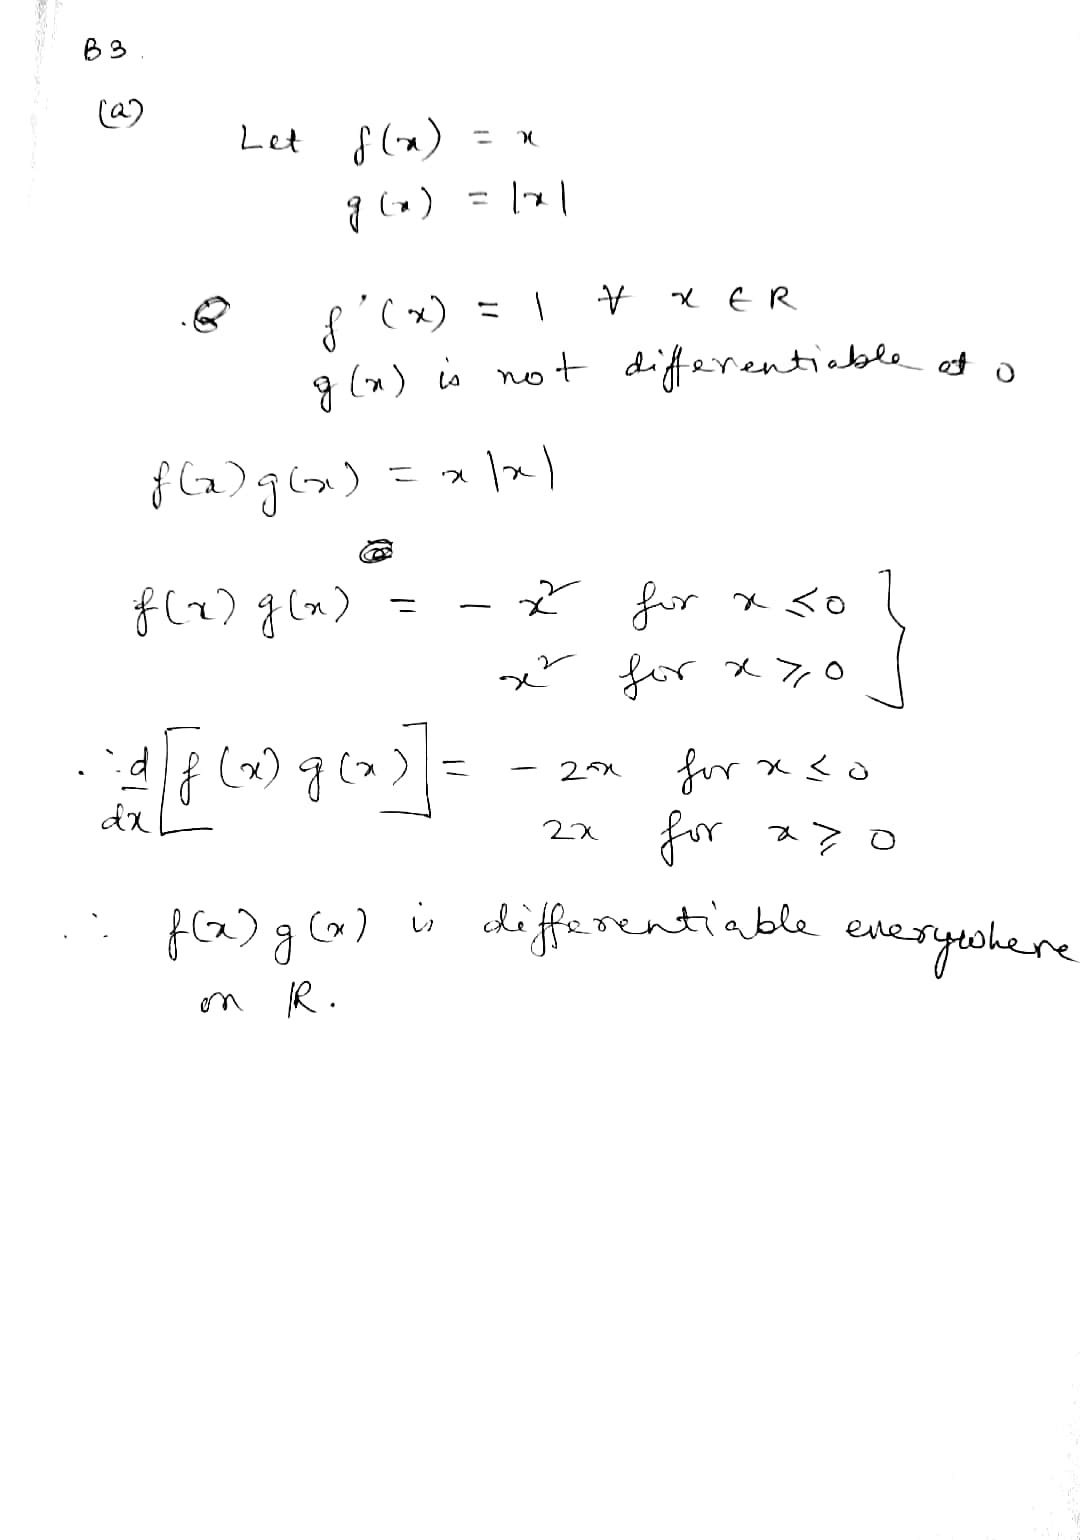 B3.
(a)
Let f(x) = x
g(x) = |x|
f'(x) = 1 ∀ x ∈ R
g(x) is not differentiable at 0
f(x)g(x) = x|x|
f(x)g(x) = -x² for x ≤ 0 }
x² for x ≥ 0
∴ d/dx [f(x)g(x)] = -2x for x ≤ 0
2x for x ≥ 0
∴ f(x)g(x) is differentiable everywhere
on ℝ.